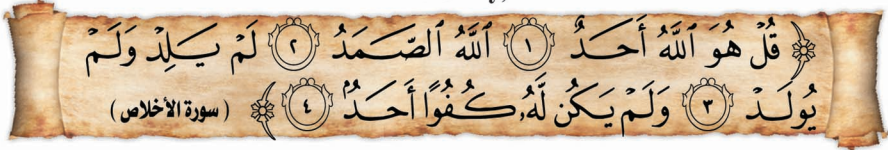 ﴿ قُلْ هُوَ ٱللَّهُ أَحَدٌ ١ ٱللَّهُ ٱلصَّمَدُ ٢ لَمْ يَلِدْ وَلَمْ
يُولَدْ ٣ وَلَمْ يَكُن لَّهُۥ كُفُوًا أَحَدٌۢ ٤ ﴾ ( سورة الأخلاص )